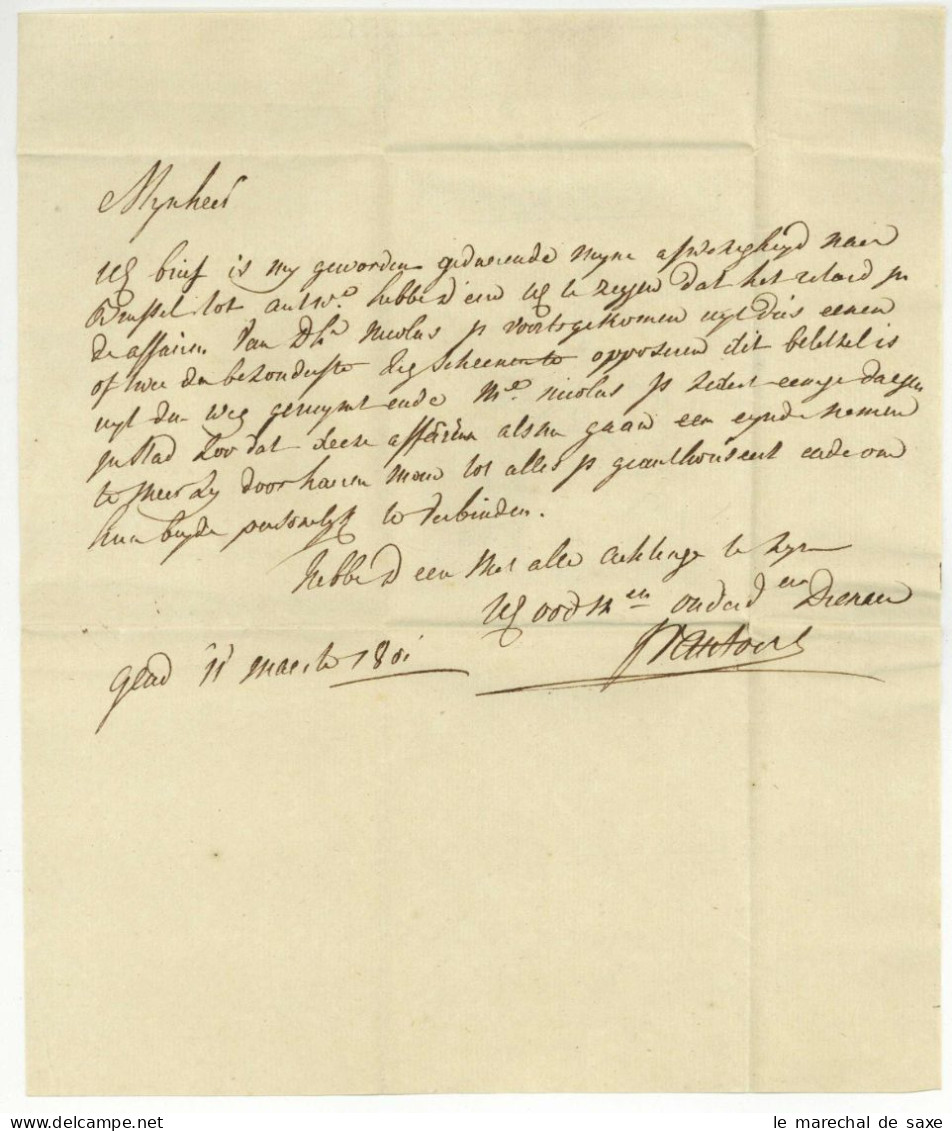 Mynheer
UE brief is my geworden geduerende myne afwezigheyd naer
Brussel tot antw.e hebbe d'eere UE te zeggen dat het retard in
de affairen van Dhr Nicolas is voortsgekomen uyt dies eenen
of twee der bezonderste opposeren dit beletsel is
uyt den weg geruymt ende Mr. Nicolas is zedert eenige daegen
in stad zoo dat deeze affairen alsnu gaan een eynde nemen
te meer zy door haeren man tot alles is geauthoriseert ende om
hun beyde persoonelyk te verbinden.
hebbe d'eere met alle achtinge te zyn
UE ootm.en onderd.en Dienaer
Gend 11 maerte 1801
le marechal de saxe